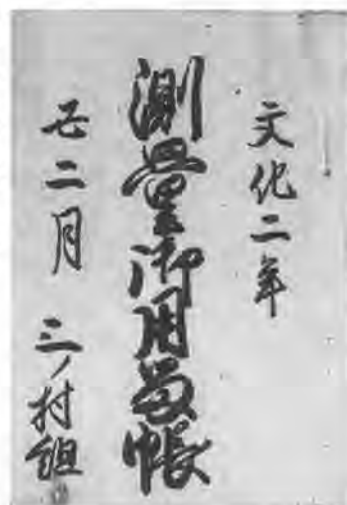 文化二年
測量御用留帳
丑二月 三ノ村組